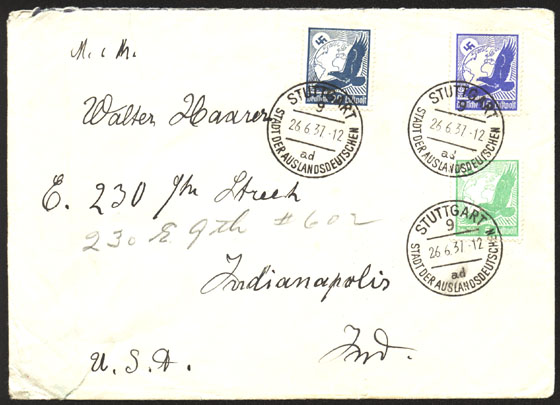 M. & M.
Walter Haarer
E. 230 9th Street
230 E 9th # 602
Indianapolis
Ind.
U. S. A.
STUTTGART
9
26.6.37.-12
ad
STADT DER AUSLANDSDEUTSCHEN
STUTTGART
9
26.6.37.-12
ad
STADT DER AUSLANDSDEUTSCHEN
STUTTGART
9
26.6.37.-12
ad
STADT DER AUSLANDSDEUTSCHEN